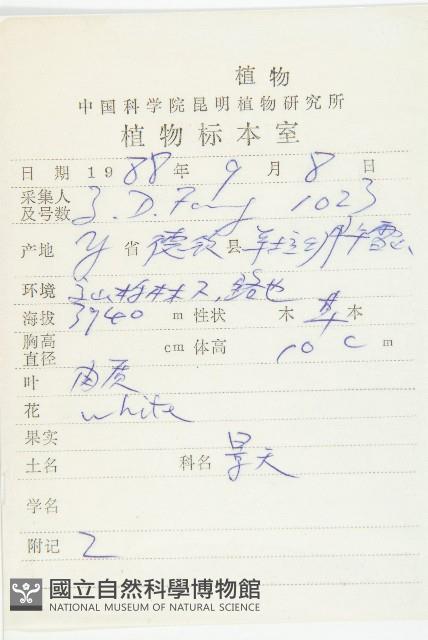 植物
中国科学院昆明植物研究所
植物标本室
日 期 1988年 9 月 8 日
采集人
及号数 Z.D.Fang 1023
产地 Y 省 德钦 县
环境
海拔 3940 m 性状 木 草 本
胸高
直径 cm 体高 10 c m
叶 肉质
花 white
果实
土名 科名 景天
学名
附记 2
國立自然科學博物館
NATIONAL MUSEUM OF NATURAL SCIENCE